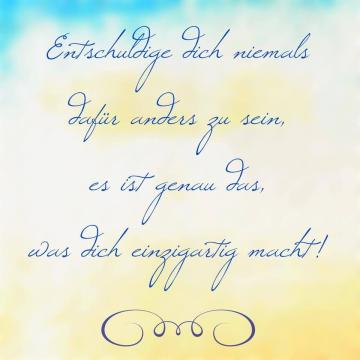 Entschuldige dich niemals
dafür anders zu sein,
es ist genau das,
was dich einzigartig macht!